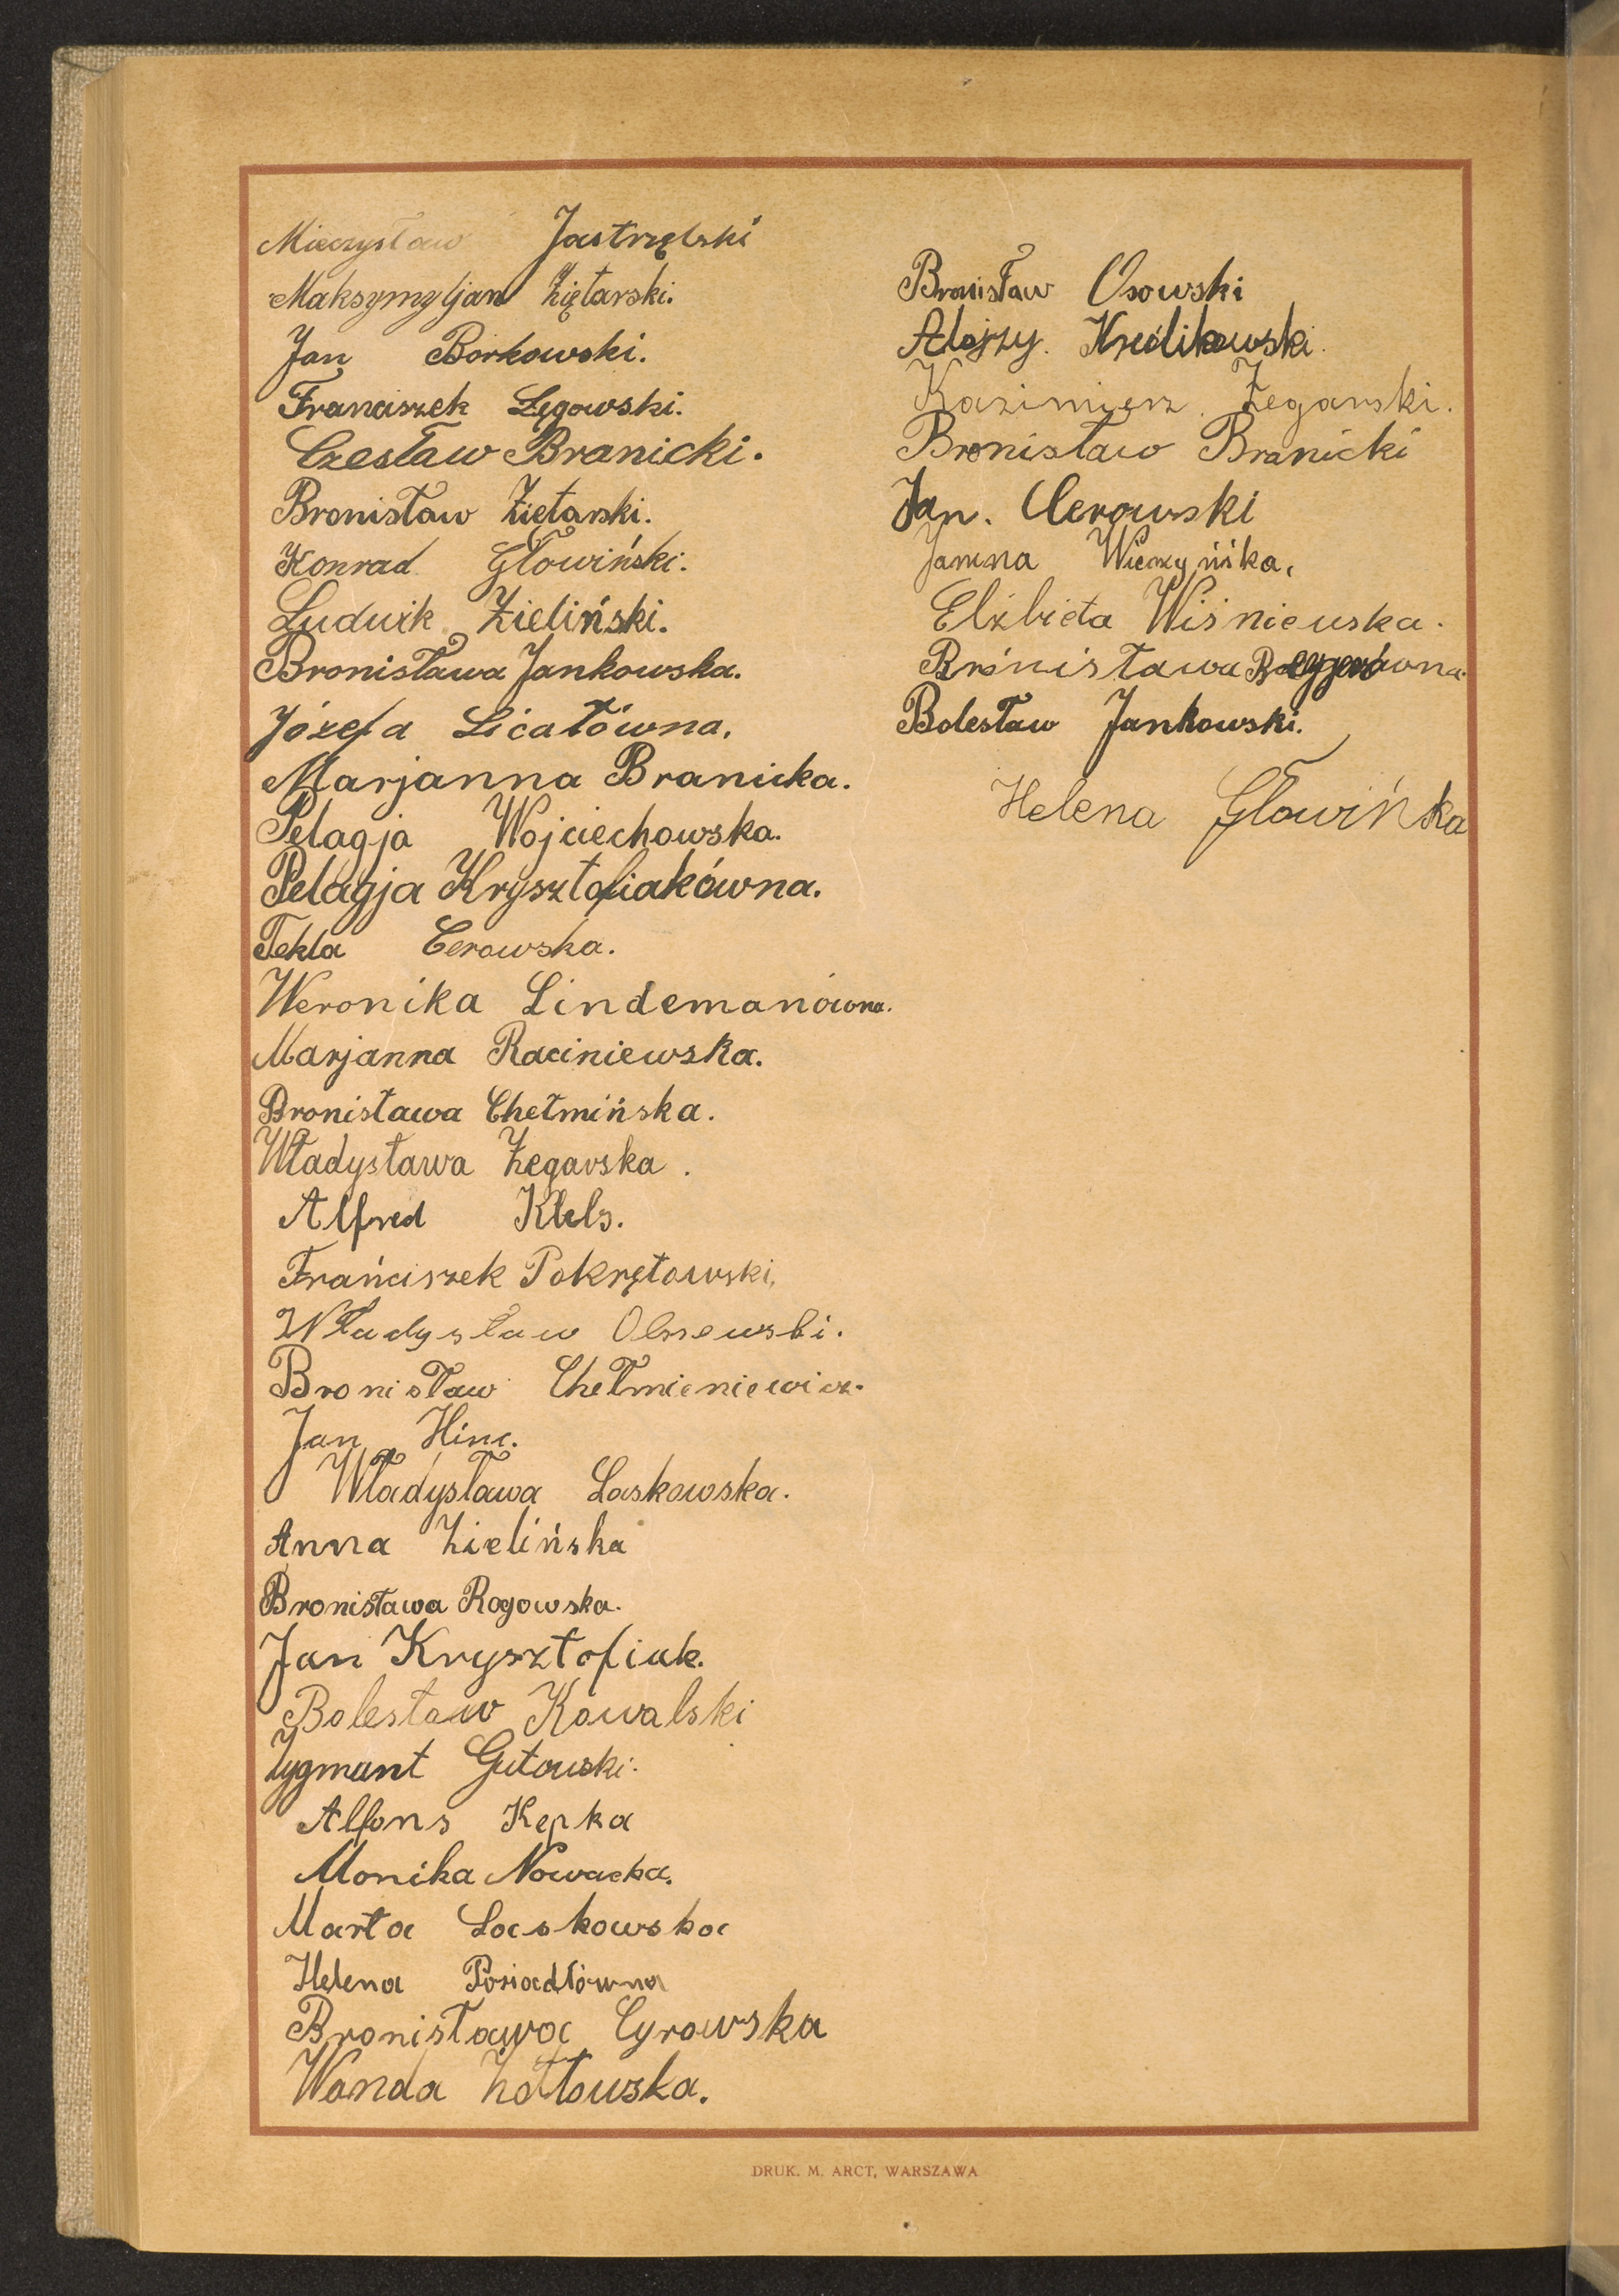 Mieczysław Jastrzębski
Maksymyljan Ziętarski.
Jan Borkowski.
Franciszek Łęgowski.
Czesław Branicki.
Bronisław Ziętarski.
Konrad Głowiński.
Ludwik Zieliński.
Bronisława Jankowska.
Józefa Licatówna.
Marjanna Branicka.
Pelagja Wojciechowska.
Pelagja Krysztofiakówna.
Tekla Cerowska.
Weronika Lindemanówna.
Marjanna Raciniewska.
Bronisława Chełmińska.
Władysława Zegarska.
Alfred
Franciszek Pokrętowski,
Władysław Olszewski.
Bronisław Chełmieniewicz.
Jan Hinc.
Władysława Laskowska.
Anna Zielińska
Bronisława Rogowska.
Jan Krysztofiak.
Bolesław Kowalski
Zygmunt Gutowski.
Alfons Kepka
Monika Nowacka.
Marta Laskowska
Helena Posiadłówna
Bronisława Cyrowska
Wanda Żółtowska.
Bronisław Osowski
Alojzy. Królikowski.
Kazimierz Zegarski.
Bronisław Branicki
Jan. Cerowski
Janina
Elżbieta Wiśniewska.
Bronisława
Bolesław Jankowski.
Helena Głowińska
DRUK. M. ARCT, WARSZAWA